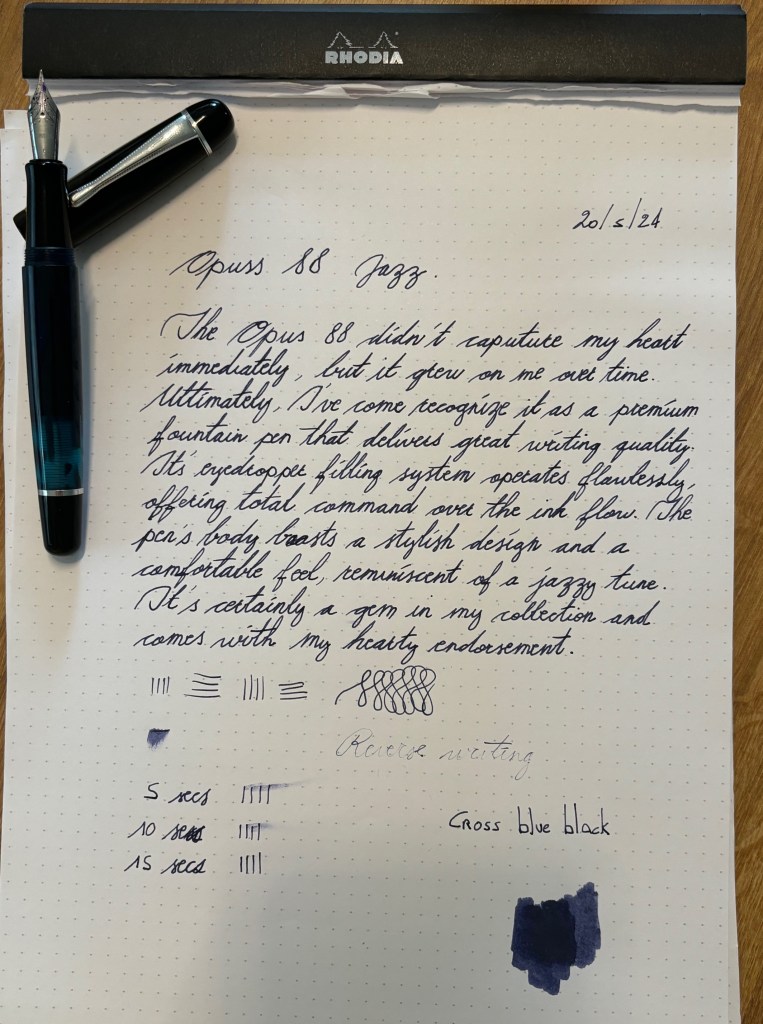 RHODIA
20/5/24
Opuss 88 Jazz.
The Opus 88 didn't caputure my heart
immediately, but it grew on me over time.
Ultimately, I've come recognize it as a premium
fountain pen that delivers great writing quality.
It's eyedropper filling system operates flawlessly,
offering total command over the ink flow. The
pen's body boasts a stylish design and a
comfortable feel, reminiscent of a jazzy tune.
It's certainly a gem in my collection and
comes with my hearty endorsement.
Reverse writing
5 secs
10 secs
Cross blue black
15 secs